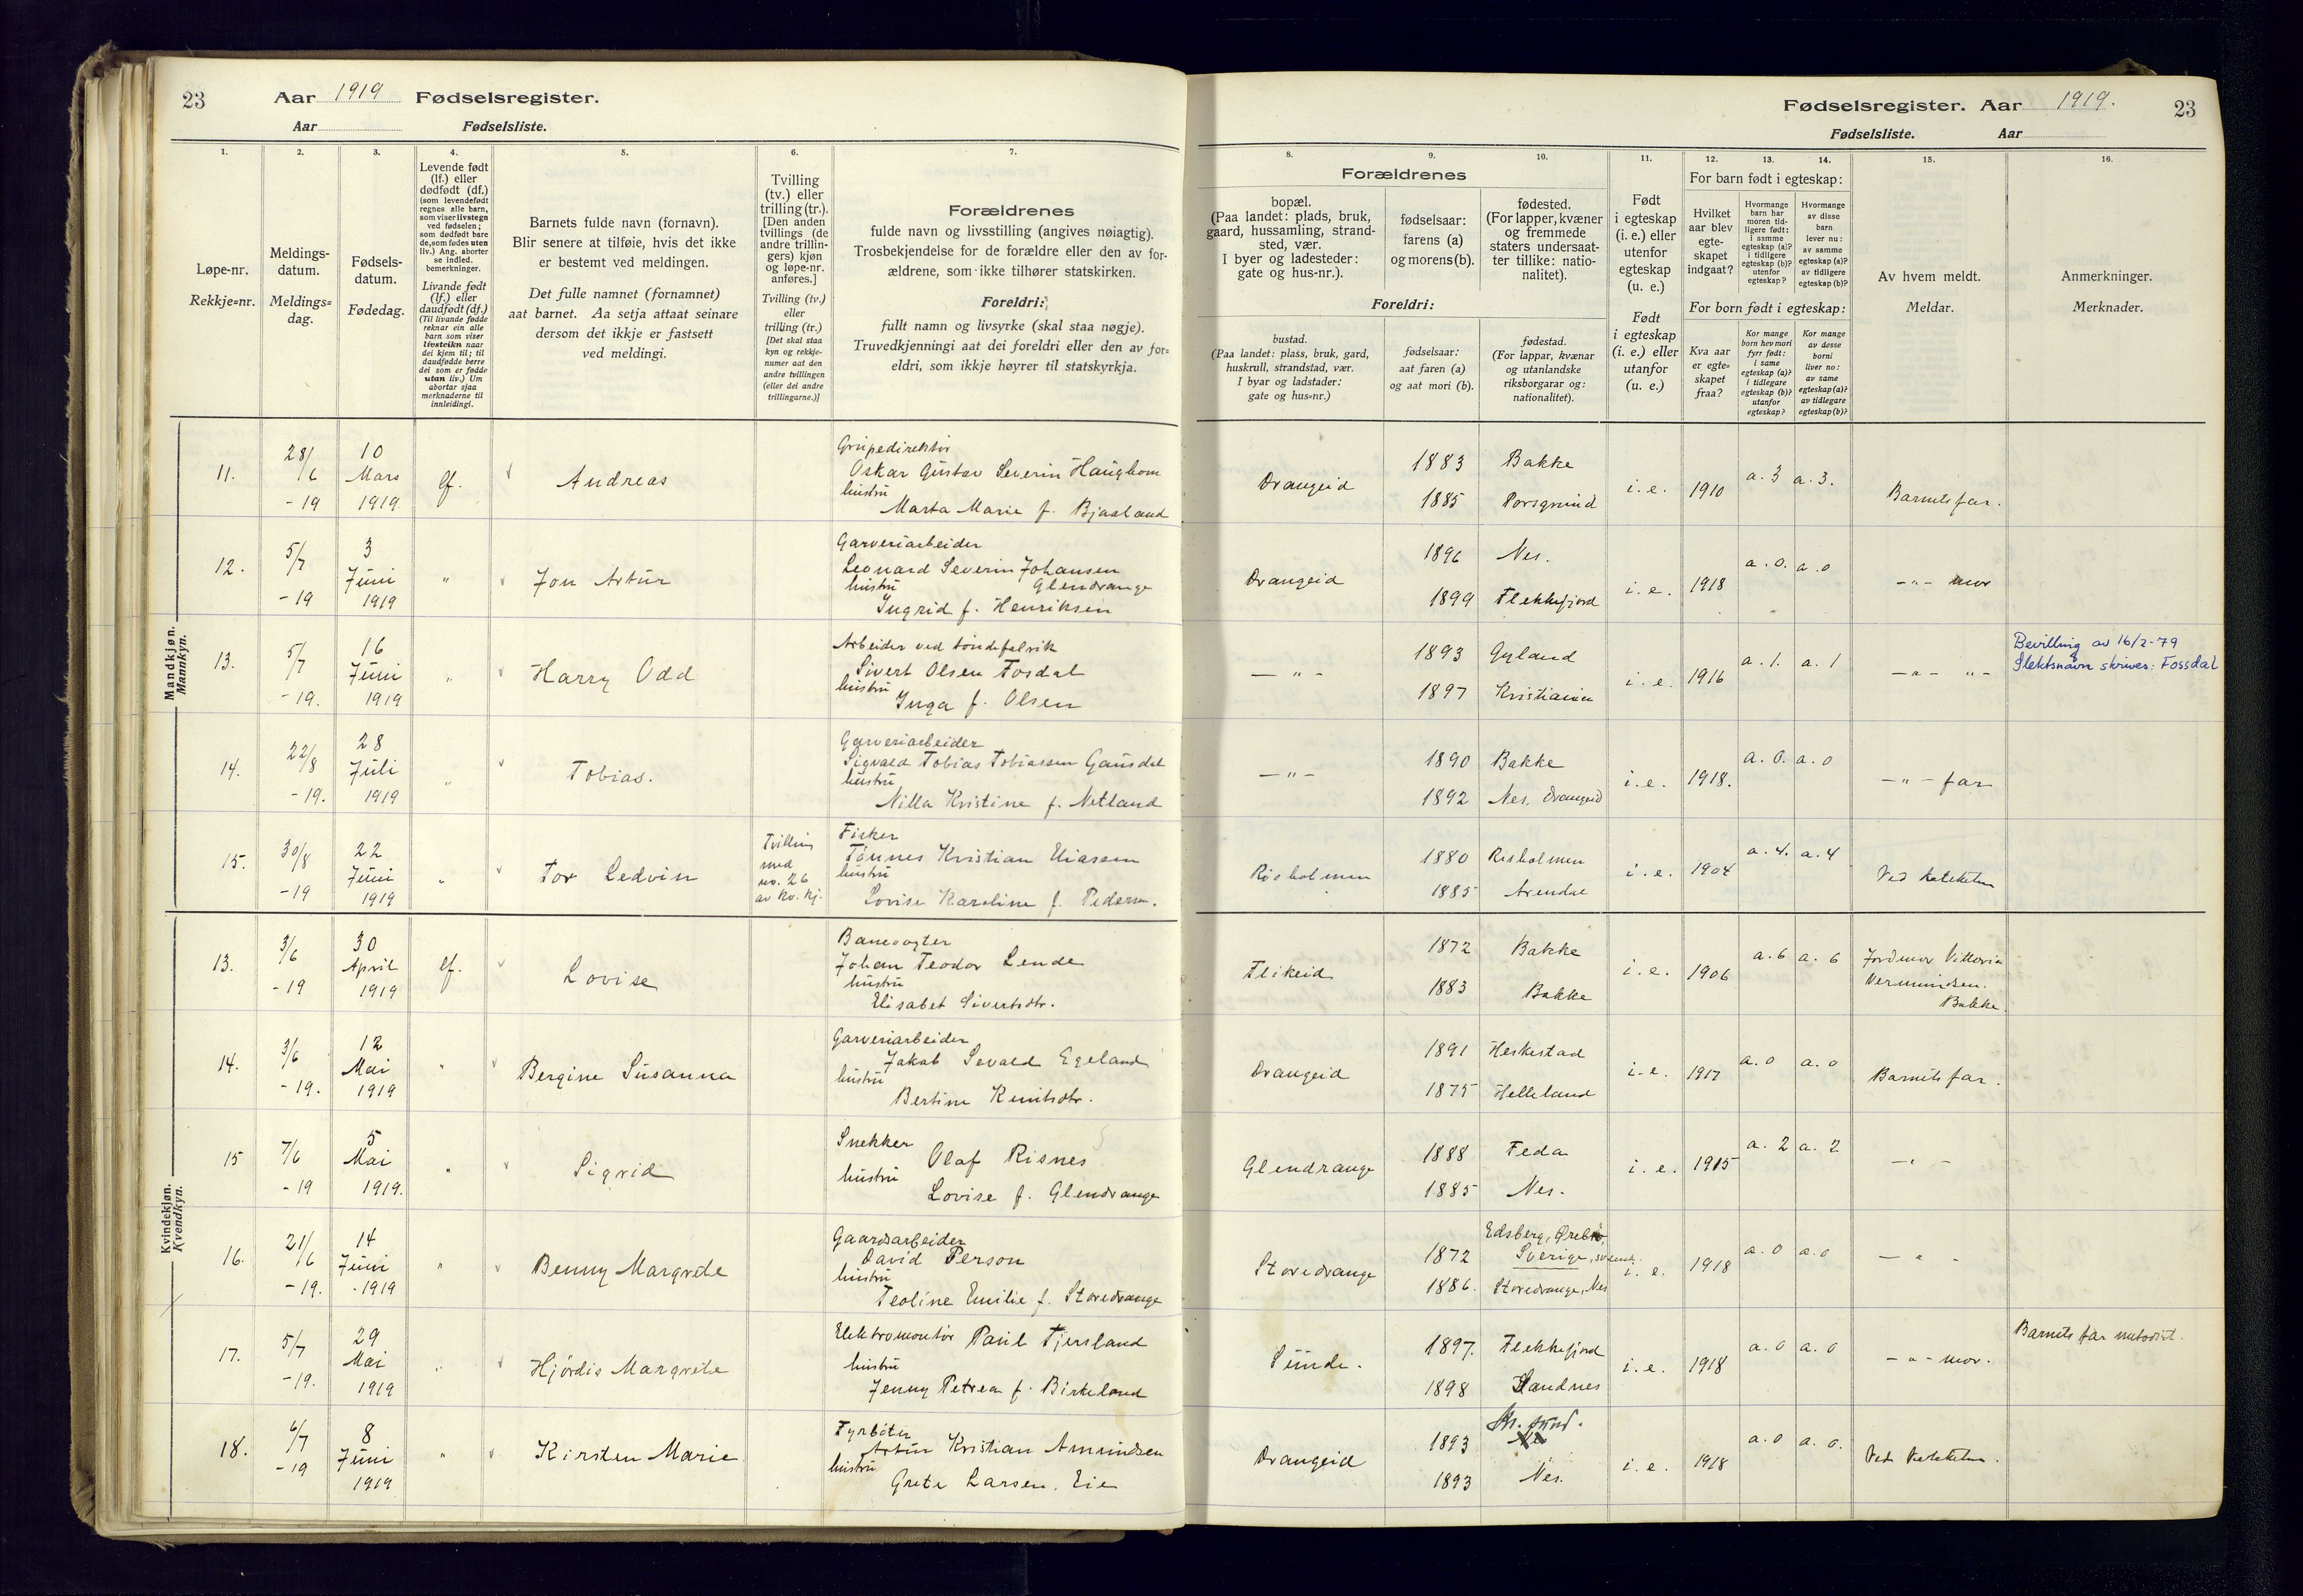 23 Aar 1919 Fødselsregister.
Aar Fødselsliste.
1. 2. 3. 4. 5. 6. 7.
Løpe-nr.
Rekkje=nr.
Meldings-
datum.
Meldings=
dag.
Fødsels-
datum.
Fødedag.
Levende født
(lf.) eller
dødfødt (df.)
(som levendefødt
regnes alle barn,
som viser livstegn
ved fødselen;
som dødfødt bare
de, som fødes uten
liv.) Ang. aborter
se indled.
bemerkninger.
Livande født
(lf.) eller
daudfødt (df.)
(Til livande fødde
reknar ein alle
barn som viser
livsteikn naar
dei kjem til; til
daudfødde berre
dei som er fødde
utan liv.) Um
abortar sjaa
merknaderne til
innleidingi.
Barnets fulde navn (fornavn).
Blir senere at tilføie, hvis det ikke
er bestemt ved meldingen.
Det fulle namnet (fornamnet)
aat barnet. Aa setja attaat seinare
dersom det ikkje er fastsett
ved meldingi.
Tvilling
(tv.) eller
trilling (tr.).
[Den anden
tvillings (de
andre trillin-
gers) kjøn
og løpe-nr.
anføres.]
Tvilling (tv.)
eller
trilling (tr.)
[Det skal staa
kyn og rekkje-
numer aat den
andre tvillingen
(eller dei andre
trillingarne.)]
Forældrenes
fulde navn og livsstilling (angives nøiagtig).
Trosbekjendelse for de forældre eller den av for-
ældrene, som ikke tilhører statskirken.
Foreldri:
fullt namn og livsyrke (skal staa nøgje).
Truvedkjenningi aat dei foreldri eller den av for=
eldri, som ikkje høyrer til statskyrkja.
Mandkjøn.
Mannkyn.
11. 28/6 -19 10 Mars 1919 lf. Andreas
Grupedirektør
Oskar Gustav Severin Haughom
hustru
Marta Marie f. Bjaaland
12. 5/7 -19 3 Juni 1919 " Jon Artur
Garveriarbeider
Leonard Severin Johansen
hustru Glendrange
Ingrid f. Henriksen
13. 5/7 -19. 16 Juni 1919 " Harry Odd
Arbeider ved tøndefabrik
Sivert Olsen Fosdal
hustru
Inga f. Olsen
14. 22/8 -19. 28 Juli 1919 " Tobias.
Garveriarbeider
Sigvald Tobias Tobiassen Gausdal
hustru
Nilla Kristine f. Netland
15. 30/8 -19 22 Juni 1919 " Tor Ledvin
Tvilling
med
no. 26
av kv. kj.
Fisker
Tønnes Kristian Eliassen
hustru
Lovise Karoline f. Pedersen.
Kvindekjøn.
Kvendkyn.
13. 3/6 -19 30 April 1919 lf. Lovise
Banevogter
Johan Teodor Lende
hustru
Elisabet Sivertsdtr.
14. 3/6 -19. 12 Mai 1919 " Bergine Susanna
Garveriarbeider
Jakob Sevald Egeland
hustru
Bertine Knutsdtr.
15 7/6 -19 5 Mai 1919. " Sigrid
Snekker
Olaf Risnes
hustru
Lovise f. Glendrange
16. 21/6 -19. 14 Juni 1919 " Benny Margrete
Gaardsarbeider
David Person
hustru
Teoline Emilie f. Storedrange
17. 5/7 -19. 29 Mai 1919 " Hjördis Margrete
Elektromontør Paul Tjersland
hustru
Jenny Petrea f. Birkeland
18. 6/7 -19 8 Juni 1919 " Kirsten Marie
Fyrbøter
Artur Kristian Amundsen
hustru
Grete Larsen. Eie
Fødselsregister. Aar 1919. 23
Fødselsliste. Aar
8. 9. 10. 11. 12. 13. 14. 15. 16.
Forældrenes
bopæl.
(Paa landet: plads, bruk,
gaard, hussamling, strand-
sted, vær.
I byer og ladesteder:
gate og hus-nr.).
fødselsaar:
farens (a)
og morens (b).
fødested.
(For lapper, kvæner
og fremmede
staters undersaat-
ter tillike: natio-
nalitet).
Foreldri:
bustad.
(Paa landet: plass, bruk, gard,
huskrull, strandstad, vær.
I byar og ladstader:
gate og hus=nr.)
fødselsaar:
aat faren (a)
og aat mori (b).
fødestad.
(For lappar, kvænar
og utanlandske
riksborgarar og:
nationalitet).
Født
i egteskap
(i. e.) eller
utenfor
egteskap
(u. e.)
Født
i egteskap
(i. e.) eller
utanfor
(u. e.)
For barn født i egteskap:
Hvilket
aar blev
egte-
skapet
indgaat?
Hvormange
barn har
moren tid-
ligere født:
i samme
egteskap (a)?
i tidligere
egteskap (b)?
utenfor
egteskap?
Hvormange
av disse
barn
lever nu:
av samme
egteskap (a)?
av tidligere
egteskap (b)?
For born født i egteskap:
Kva aar
er egte=
skapet
fraa?
Kor mange
born hev mori
fyrr født:
i same
egteskap (a)?
i tidlegare
egteskap (b)?
utanfor
egteskap?
Kor mange
av desse
borni
liver no:
av same
egteskap (a)?
av tidlegare
egteskap (b)?
Av hvem meldt.
Meldar.
Anmerkninger.
Merknader.
Drangeid 1883 Bakke i. e. 1910 a. 3 a. 3. Barnets far.
1885 Porsgrund
Drangeid 1896 Nes. i. e. 1918 a. 0. a. 0 — " — mor
1899 Flekkefjord
— " — 1893 Gyland i. e. 1916 a. 1. a. 1 — " — " —
1897 Kristiania
Bevilling av 16/2-79
Slektsnavn skrives: Fossdal
— " — 1890 Bakke i. e. 1918. a. 0. a. 0 — " — far
1892 Nes, Drangeid
Risholmen 1880 Risholmen i. e. 1904 a. 4. a. 4 Ved kateketen
1885 Arendal
Flikeid 1872 Bakke i. e. 1906 a. 6 a. 6 Jordmor Viktoria
1883 Bakke
Bakke.
Drangeid 1891 Heskestad i. e. 1917 a. 0 a. 0 Barnets far.
1875 Helleland
Glendrange 1888 Feda i. e. 1915 a. 2 a. 2 — " —
1885 Nes.
Storedrange 1872 Edsberg, Ørebro,
Sverige, svensk. i. e. 1918 a. 0 a. 0 — " —
1886. Storedrange, Nes
Sunde. 1897. Flekkefjord i. e. 1918 a. 0 a. 0 — " — mor. Barnets far metodist.
1898 Sandnes
Drangeid 1893 Kr. sund. i. e. 1918 a. 0 a. 0. Ved kateketen.
1893 Nes.